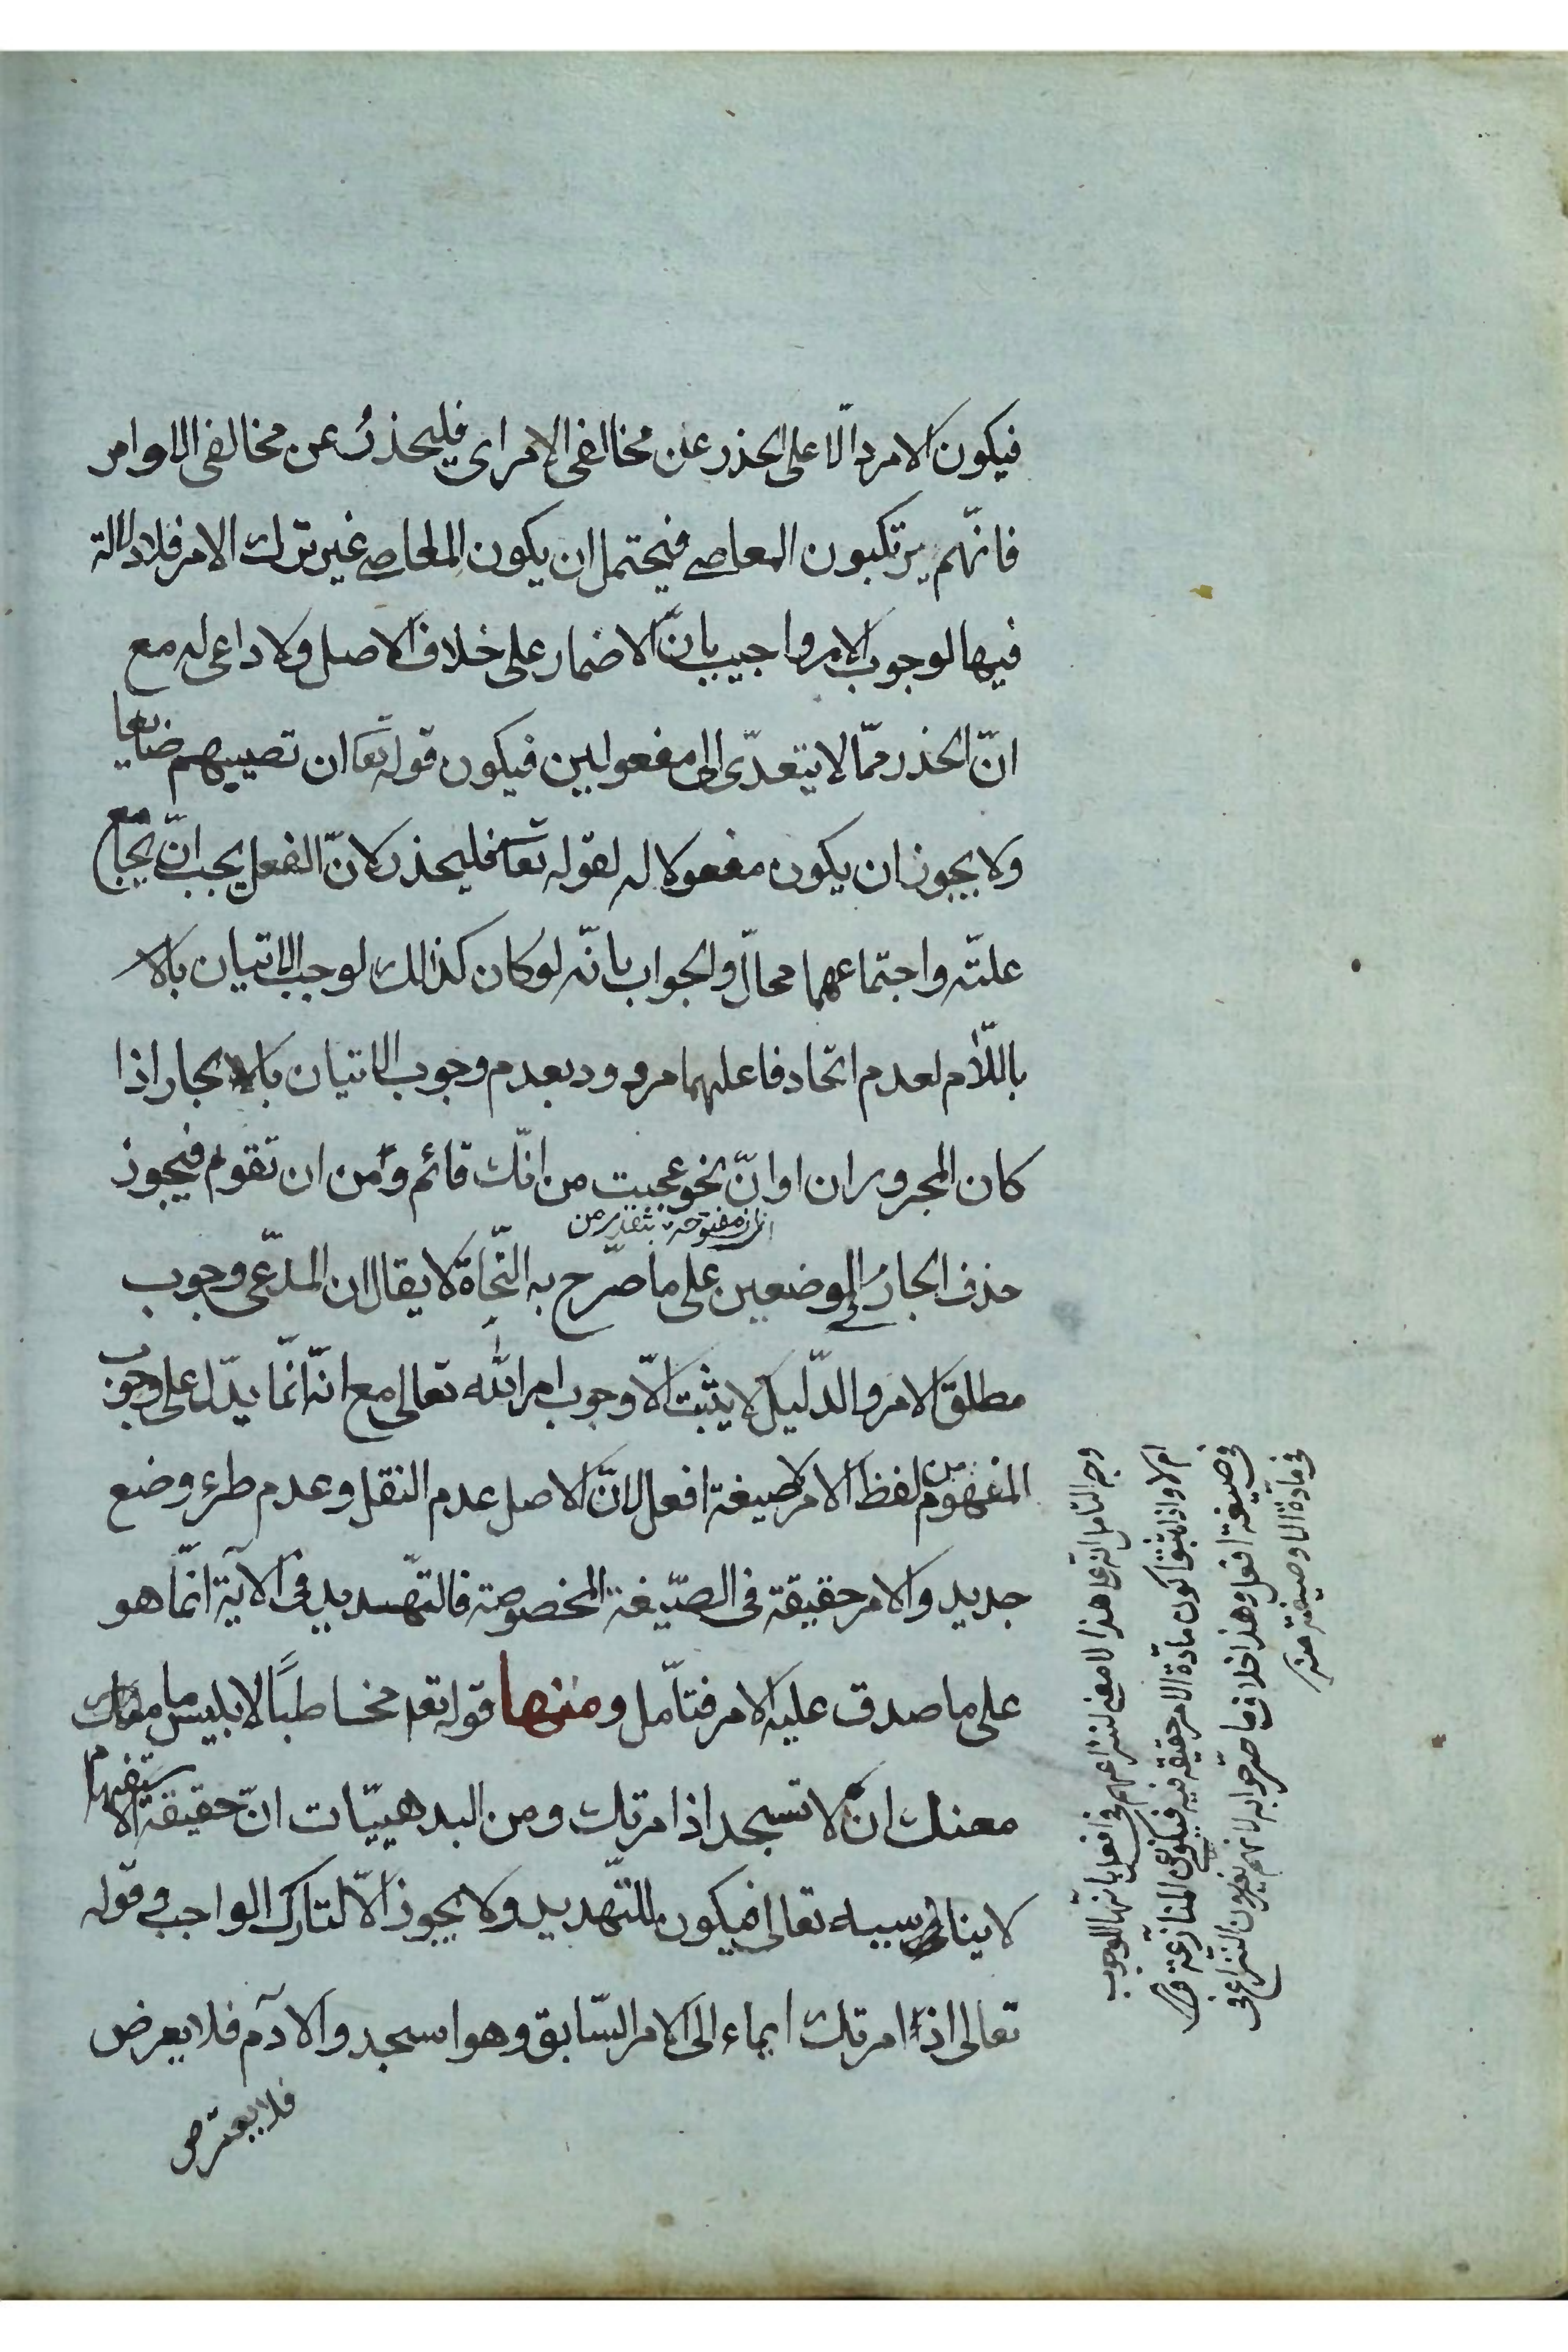 فيكون الامر دالّا على الحذر عن مخالفى الامر اى فليحذر عن مخالفى الاوامر
فانّهم يرتكبون المعاصى فيحتمل ان يكون المعاصى غير ترك الامر فلا دلالة
فيها لوجوب الامر واجيب بانّ الاضمار على خلاف الاصل ولا داعى له مع
انّ الحذر ممّا لا يتعدّى الى مفعولين فيكون قوله تعا ان تصيبهم ضايعا
ولا يجوز ان يكون مفعولا له لقوله تعا فليحذر لانّ الفعل يجب انّ يجامع
علّته واجتماعهما محالّ والجواب بانّه لو كان كذلك لوجب الاتيان بالا
باللّام لعدم اتّحاد فاعلهما مردود بعدم وجوب الاتيان بالجار اذا
كان المجرور ان او انّ نحو عجبت من انّك قائم ومن ان تقوم فيجوز
ان مفتوحة بتقدير من
حذف الجار فى الموضعين على ما صرّح به النّحاة لا يقال ان المدّعى وجوب
مطلق الامر والدّليل لا يثبت الّا وجوب امر الله تعالى مع انّه انّما يدّل على وجوب
المفهوم من لفظ الامر لا صيغة افعل لانّ الاصل عدم النقل وعدم طرء وضع
جديد والامر حقيقة فى الصّيغة المخصوصة فالتهّديد فى الآية انّما هو
على ما صدق عليه الامر فتامّل ومنها قوله تعه مخاطبًا لابليس ما منعك
معنك ان لا تسجد اذ امرتك ومن البدهييّات انّ حقيقة الاستفهام
لا يناسبه تعالى فيكون للتّهديد ولا يجوز الّا لتارك الواجب وفى قوله
تعالى اذ امرتك ايماء الى الامر السّابق وهو اسجدوا لآدم فلا يعرض
فلا يعترض
وجه التامل انه على هذا لا معنى لنزاعهم فى افعل بانّها للوجوب
ام لا واذا ثبت كون مادّة الامر حقيقة فيه فيكون المنازعة
فى صيغة افعل وهذا خلاف ما صرّحوا به لانهم يفردون النزاع فى
فى مادّة الامر وصيغته منه